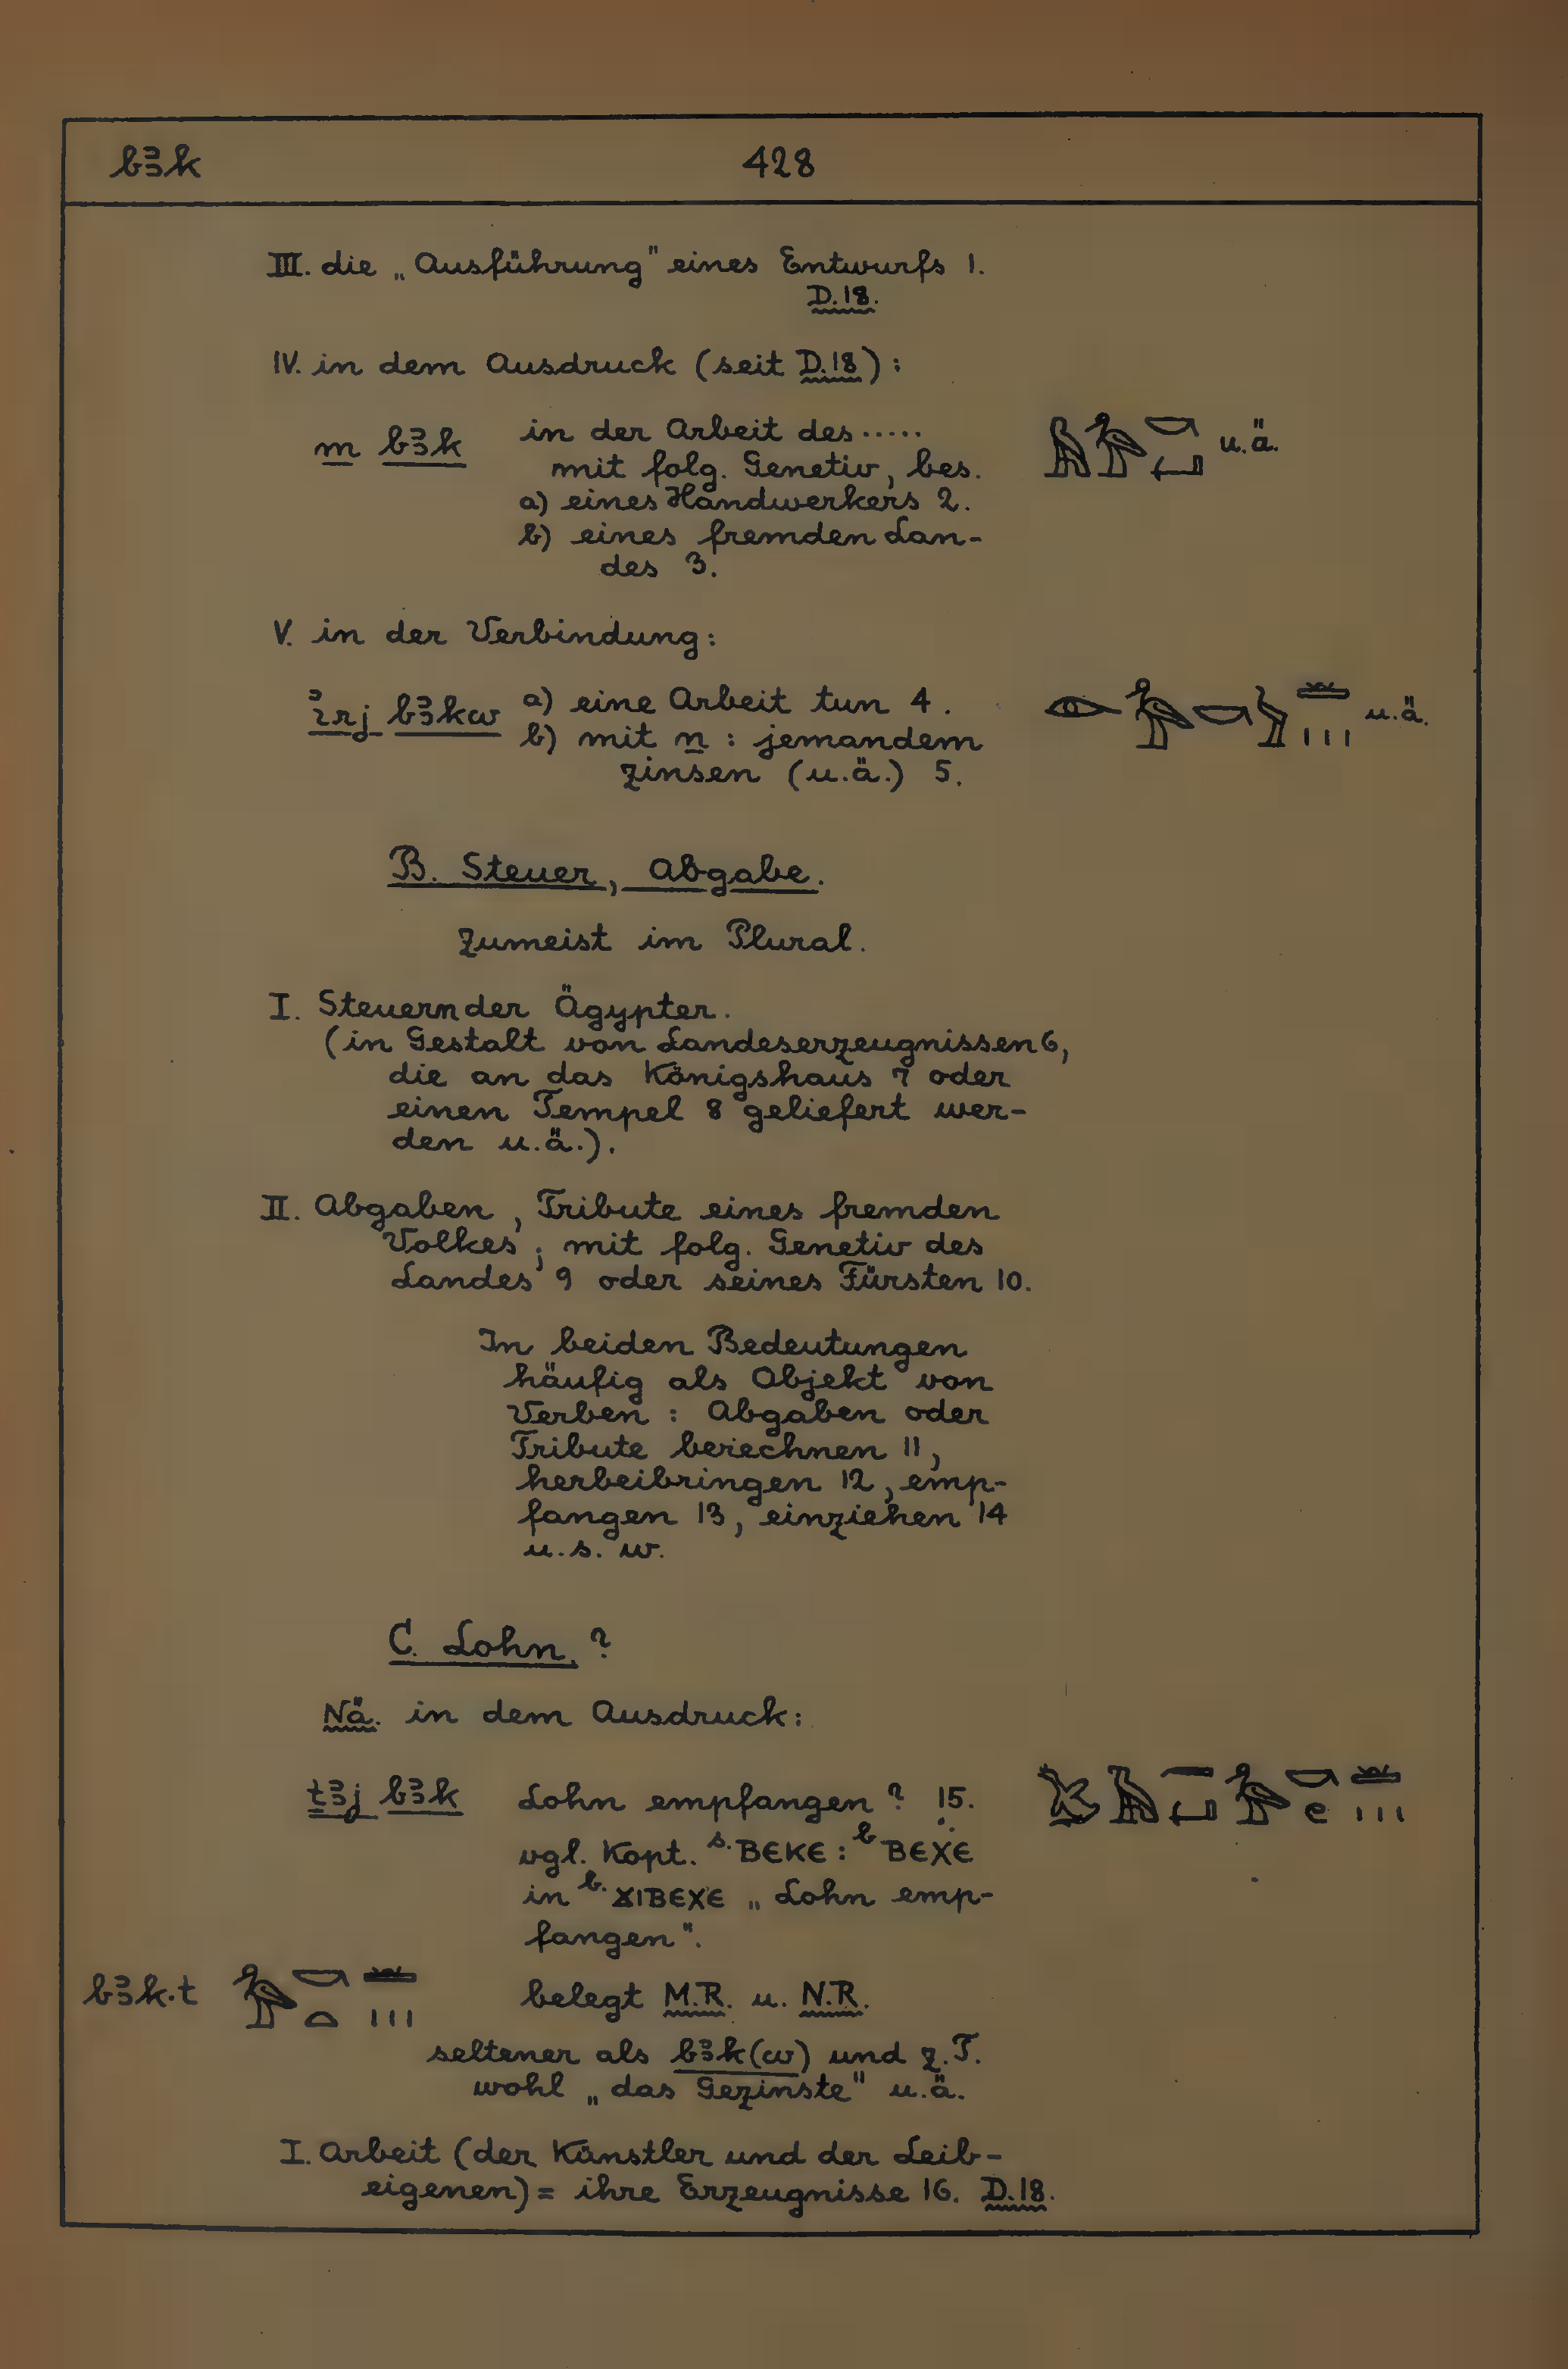 bꜣk 428
III. die „Ausführung" eines Entwurfs 1.
D.18.
IV. in dem Ausdruck (seit D.18):
m bꜣk in der Arbeit des ..... u.ä.
mit folg. Genetiv, bes.
a) eines Handwerkers 2.
b) eines fremden Lan-
des 3.
V. in der Verbindung:
ı͗rj bꜣkw a) eine Arbeit tun 4. u.ä.
b) mit n : jemandem
zinsen (u.ä.) 5.
B. Steuer, Abgabe.
Zumeist im Plural.
I. Steuern der Ägypter.
(in Gestalt von Landeserzeugnissen 6,
die an das Königshaus 7 oder
einen Tempel 8 geliefert wer-
den u.ä.).
II. Abgaben, Tribute eines fremden
Volkes; mit folg. Genetiv des
Landes 9 oder seines Fürsten 10.
In beiden Bedeutungen
häufig als Objekt von
Verben : Abgaben oder
Tribute berechnen 11,
herbeibringen 12, emp-
fangen 13, einziehen 14
u.s.w.
C. Lohn. ?
Nä. in dem Ausdruck:
ṯꜣj bꜣk Lohn empfangen ? 15.
vgl. Kopt. s. ⲂⲈⲔⲈ : b ⲂⲈⲬⲈ
in b. ϪⲒⲂⲈⲬⲈ „Lohn emp-
fangen".
bꜣk.t belegt M.R. u. N.R.
seltener als bꜣk(w) und z.T.
wohl „das Gezinste" u.ä.
I. Arbeit (der Künstler und der Leib-
eigenen) = ihre Erzeugnisse 16. D.18.